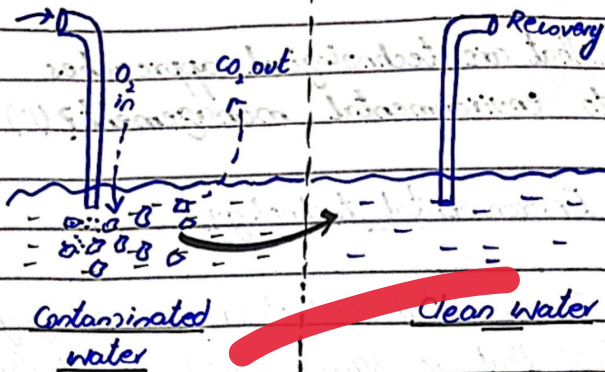 Recovery
O₂
in
CO₂ out
Contaminated
water
Clean water